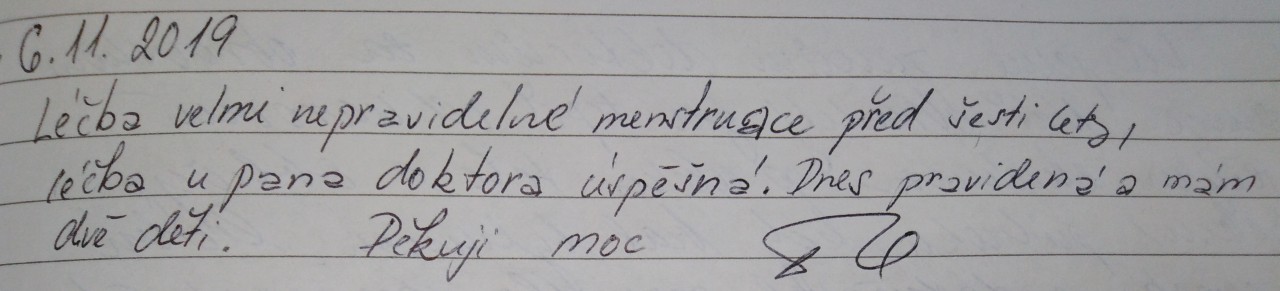 6.11. 2019
Léčba velmi nepravidelné menstruace před šesti lety,
léčba u pana doktora úspěšná. Dnes pravidená a mám
dvě děti. Děkuji moc